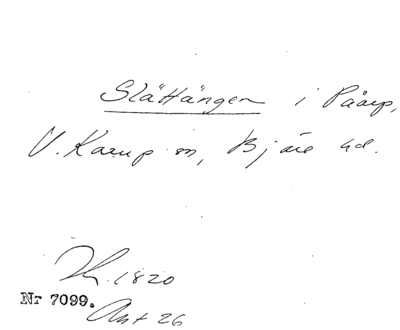 Slättängen i Påarp,
V. Karup sn, Bjäre hd.
Kr. 1820
Nr 7099.
Akt 26